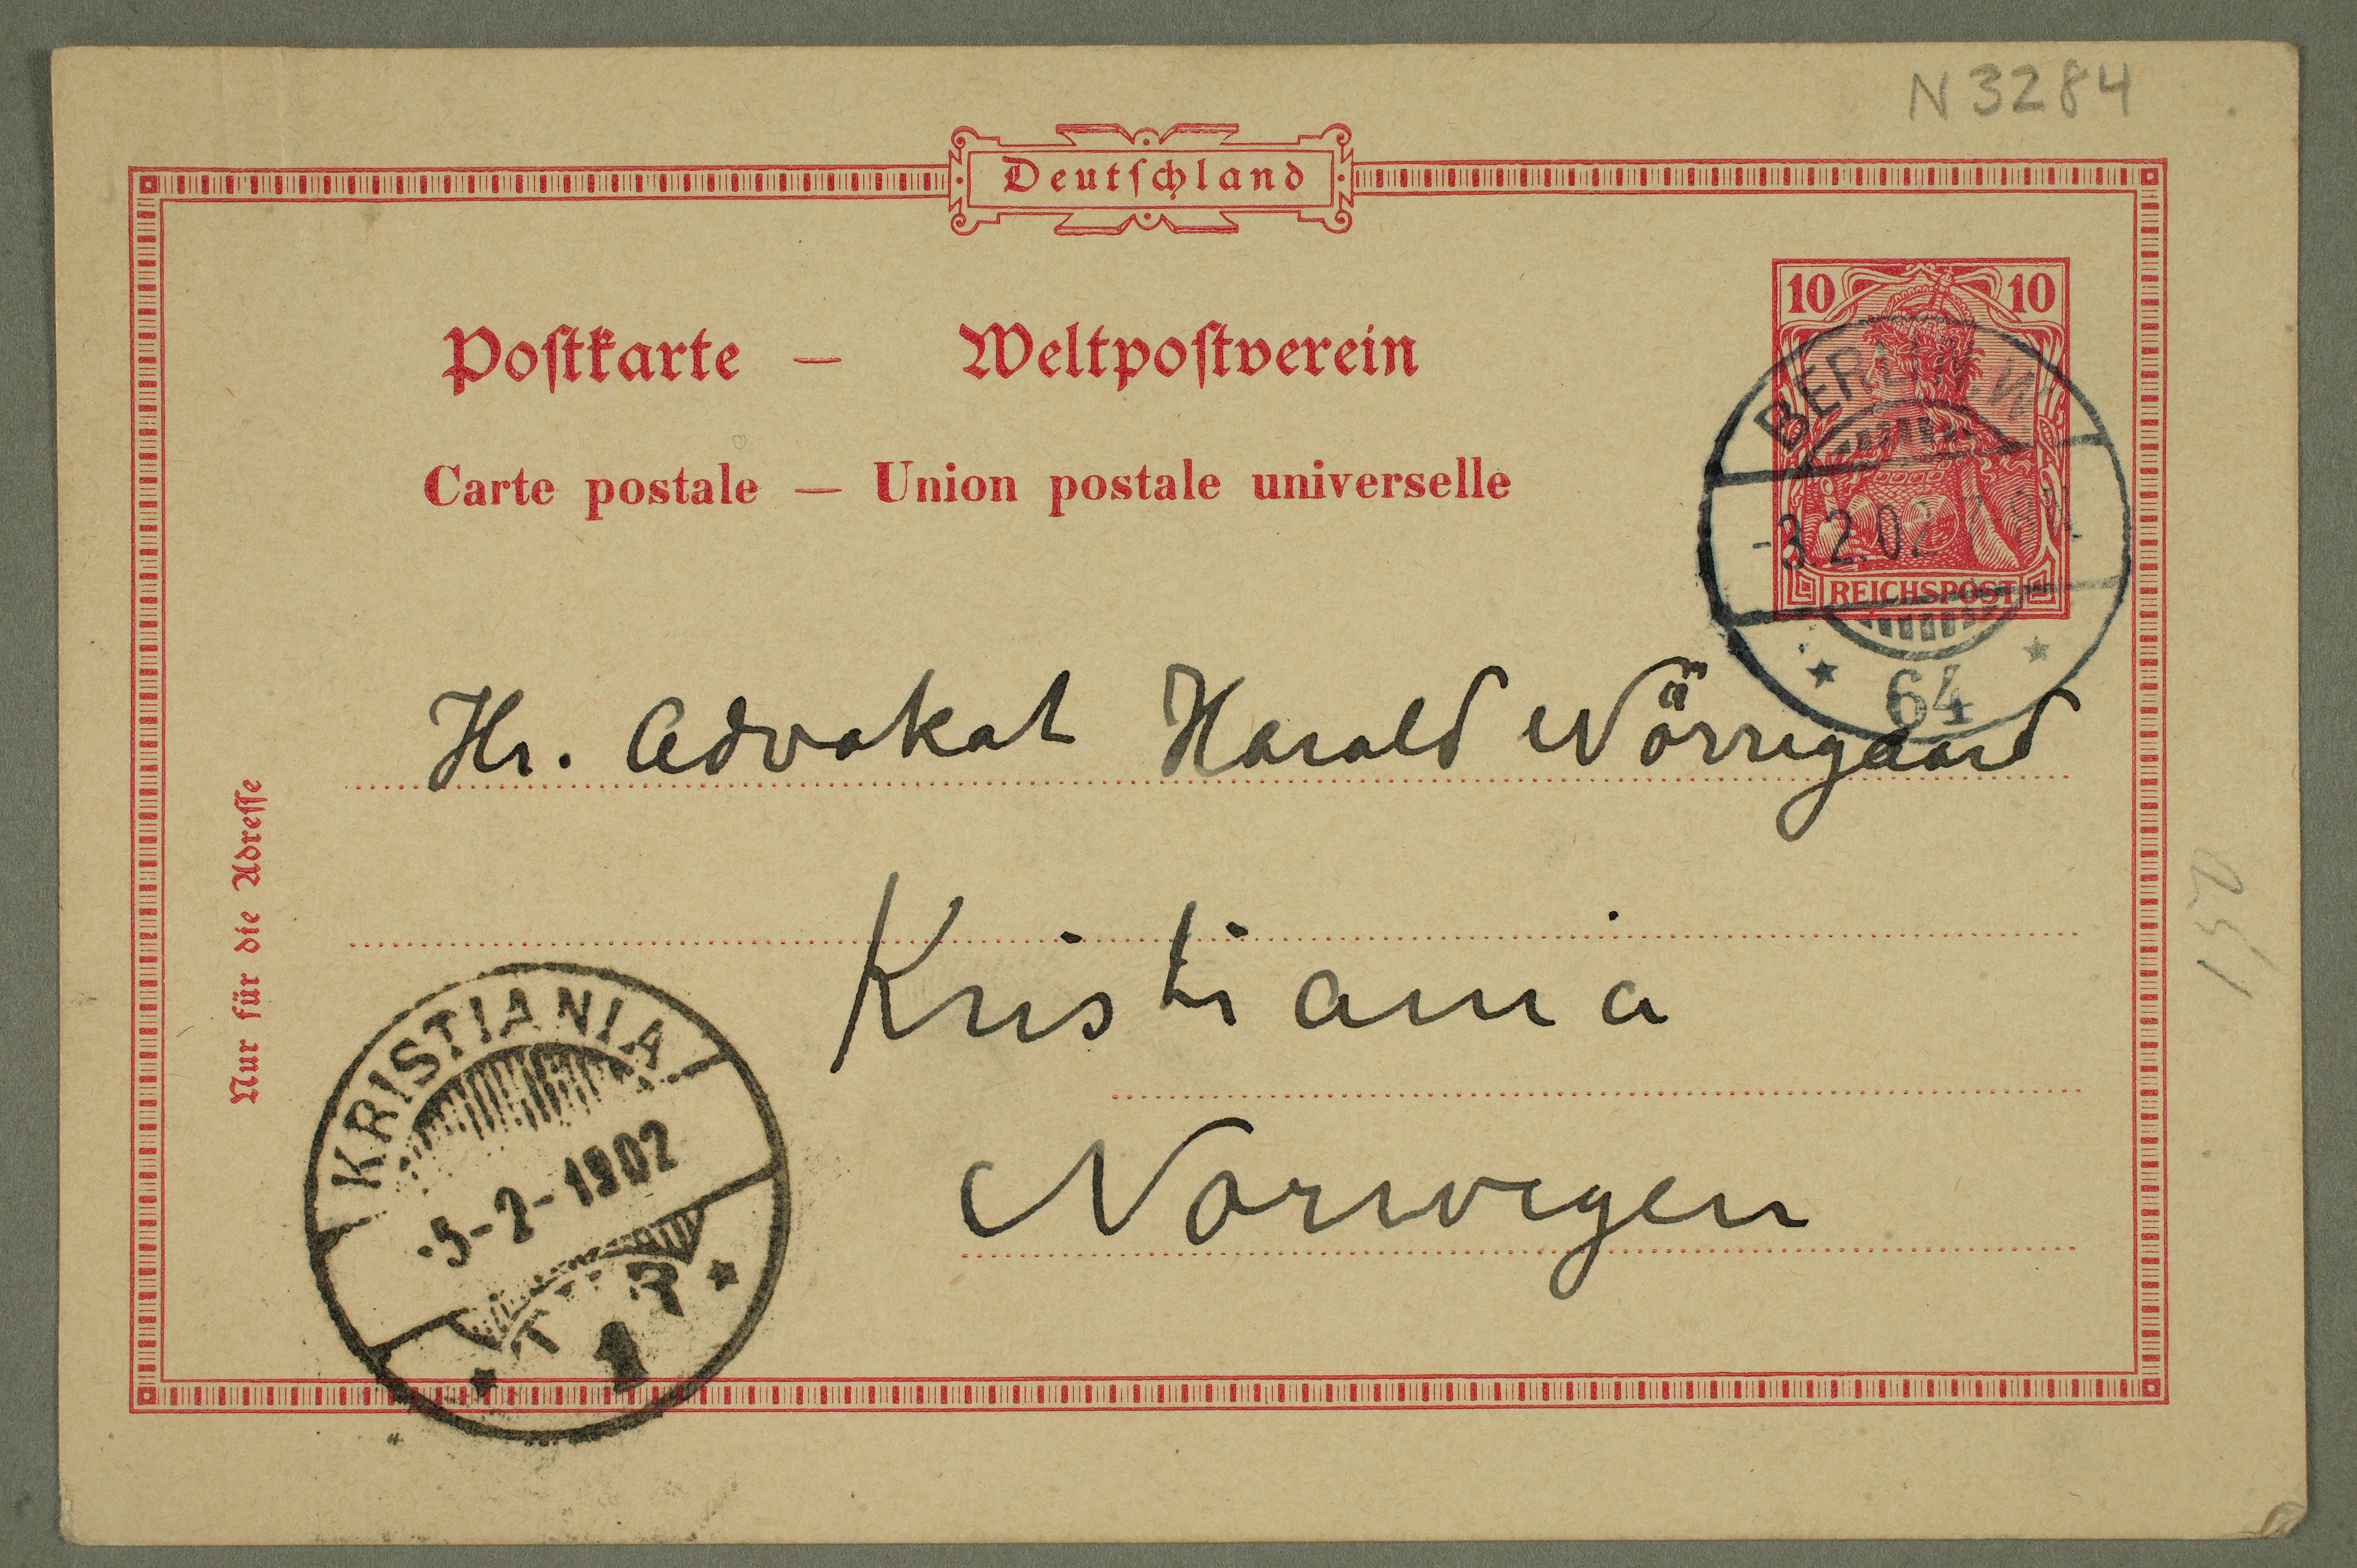 N 3284
Deutſchland
10 10
Poſtkarte — Weltpoſtverein
Carte postale — Union postale universelle
BERLIN. W.
-3.2.02
REICHSPOST
* 64 *
Hr. Advokat Harald Nörregaard
Kristiania
Norwegen
Nur für die Adreſſe
KRISTIANIA
-5-2-1902
1